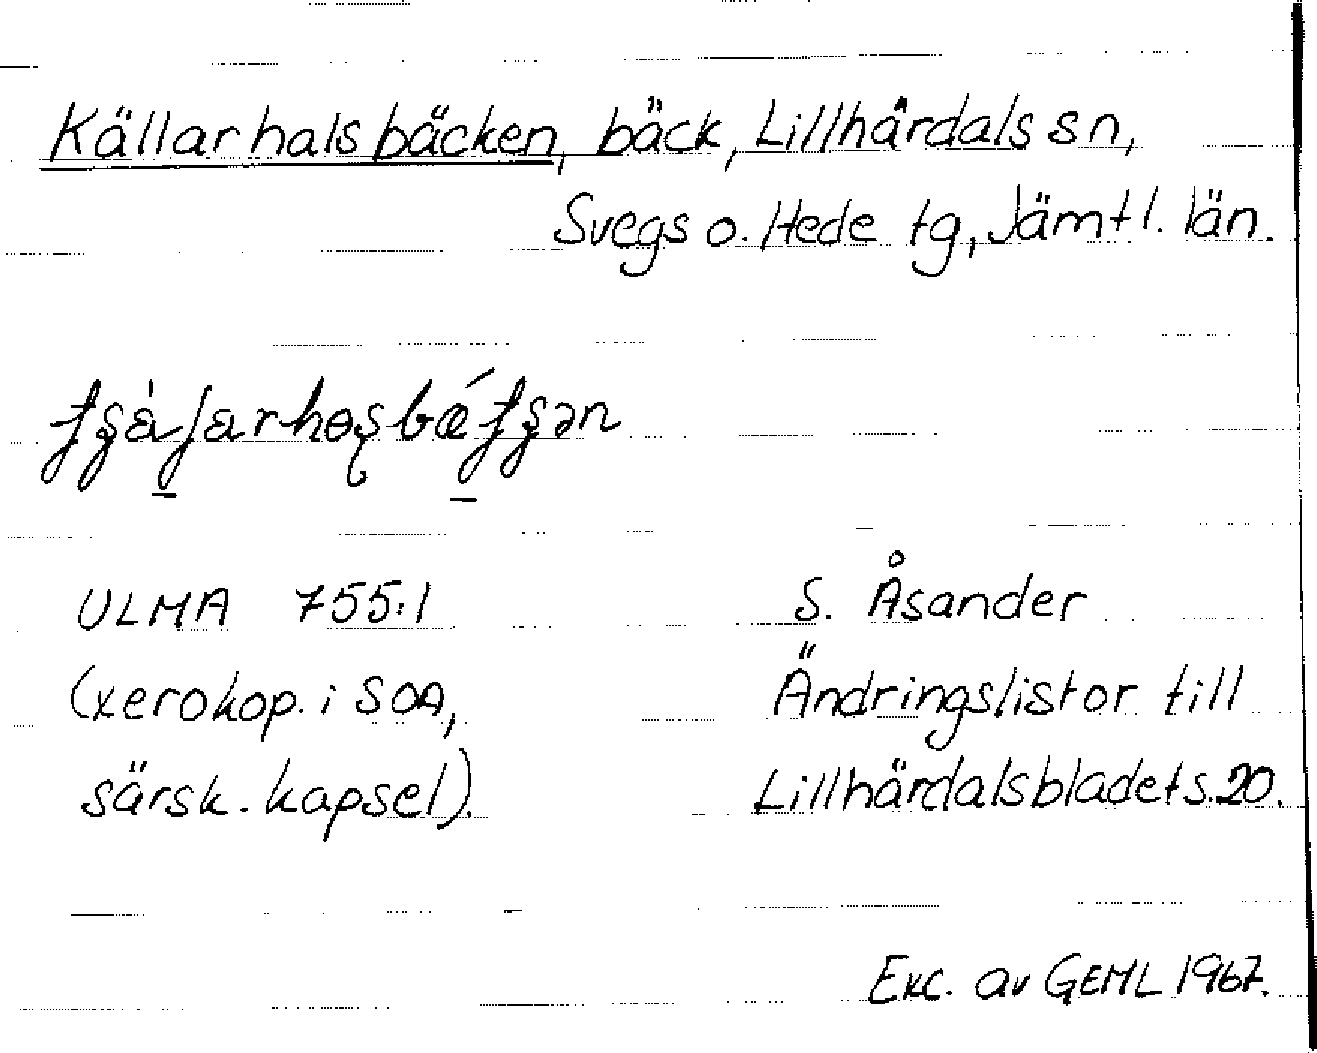 Källarhalsbäcken, bäck, Lillhärdals sn,
Svegs o. Hede tg, Jämtl. län.
ULMA 755:1
(xerokop. i SOA,
särsk. kapsel).
S. Åsander
Ändringslistor till
Lillhärdalsbladet s. 20.
Exc. av GEML 1967.